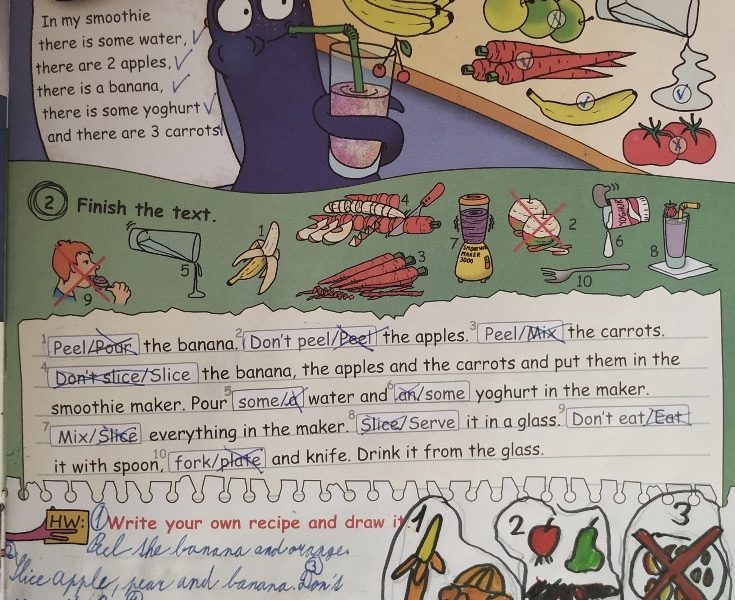 In my smoothie
there is some water,
there are 2 apples,
there is a banana,
there is some yoghurt
and there are 3 carrots
2 Finish the text.
1
2
3
4
5
6
7
8
9
10
YOGHURT
SMOOTHIE MAKER 3000
1 Peel/Pour the banana. 2 Don't peel/Peel the apples. 3 Peel/Mix the carrots.
4 Don't slice/Slice the banana, the apples and the carrots and put them in the
smoothie maker. Pour 5 some/a water and 6 an/some yoghurt in the maker.
7 Mix/Slice everything in the maker. 8 Slice/Serve it in a glass. 9 Don't eat/Eat
it with spoon, 10 fork/plate and knife. Drink it from the glass.
HW: 1 Write your own recipe and draw it
Peel the banana and orange.
2 Slice apple, pear and banana. 3 Don't
4
1
2
3